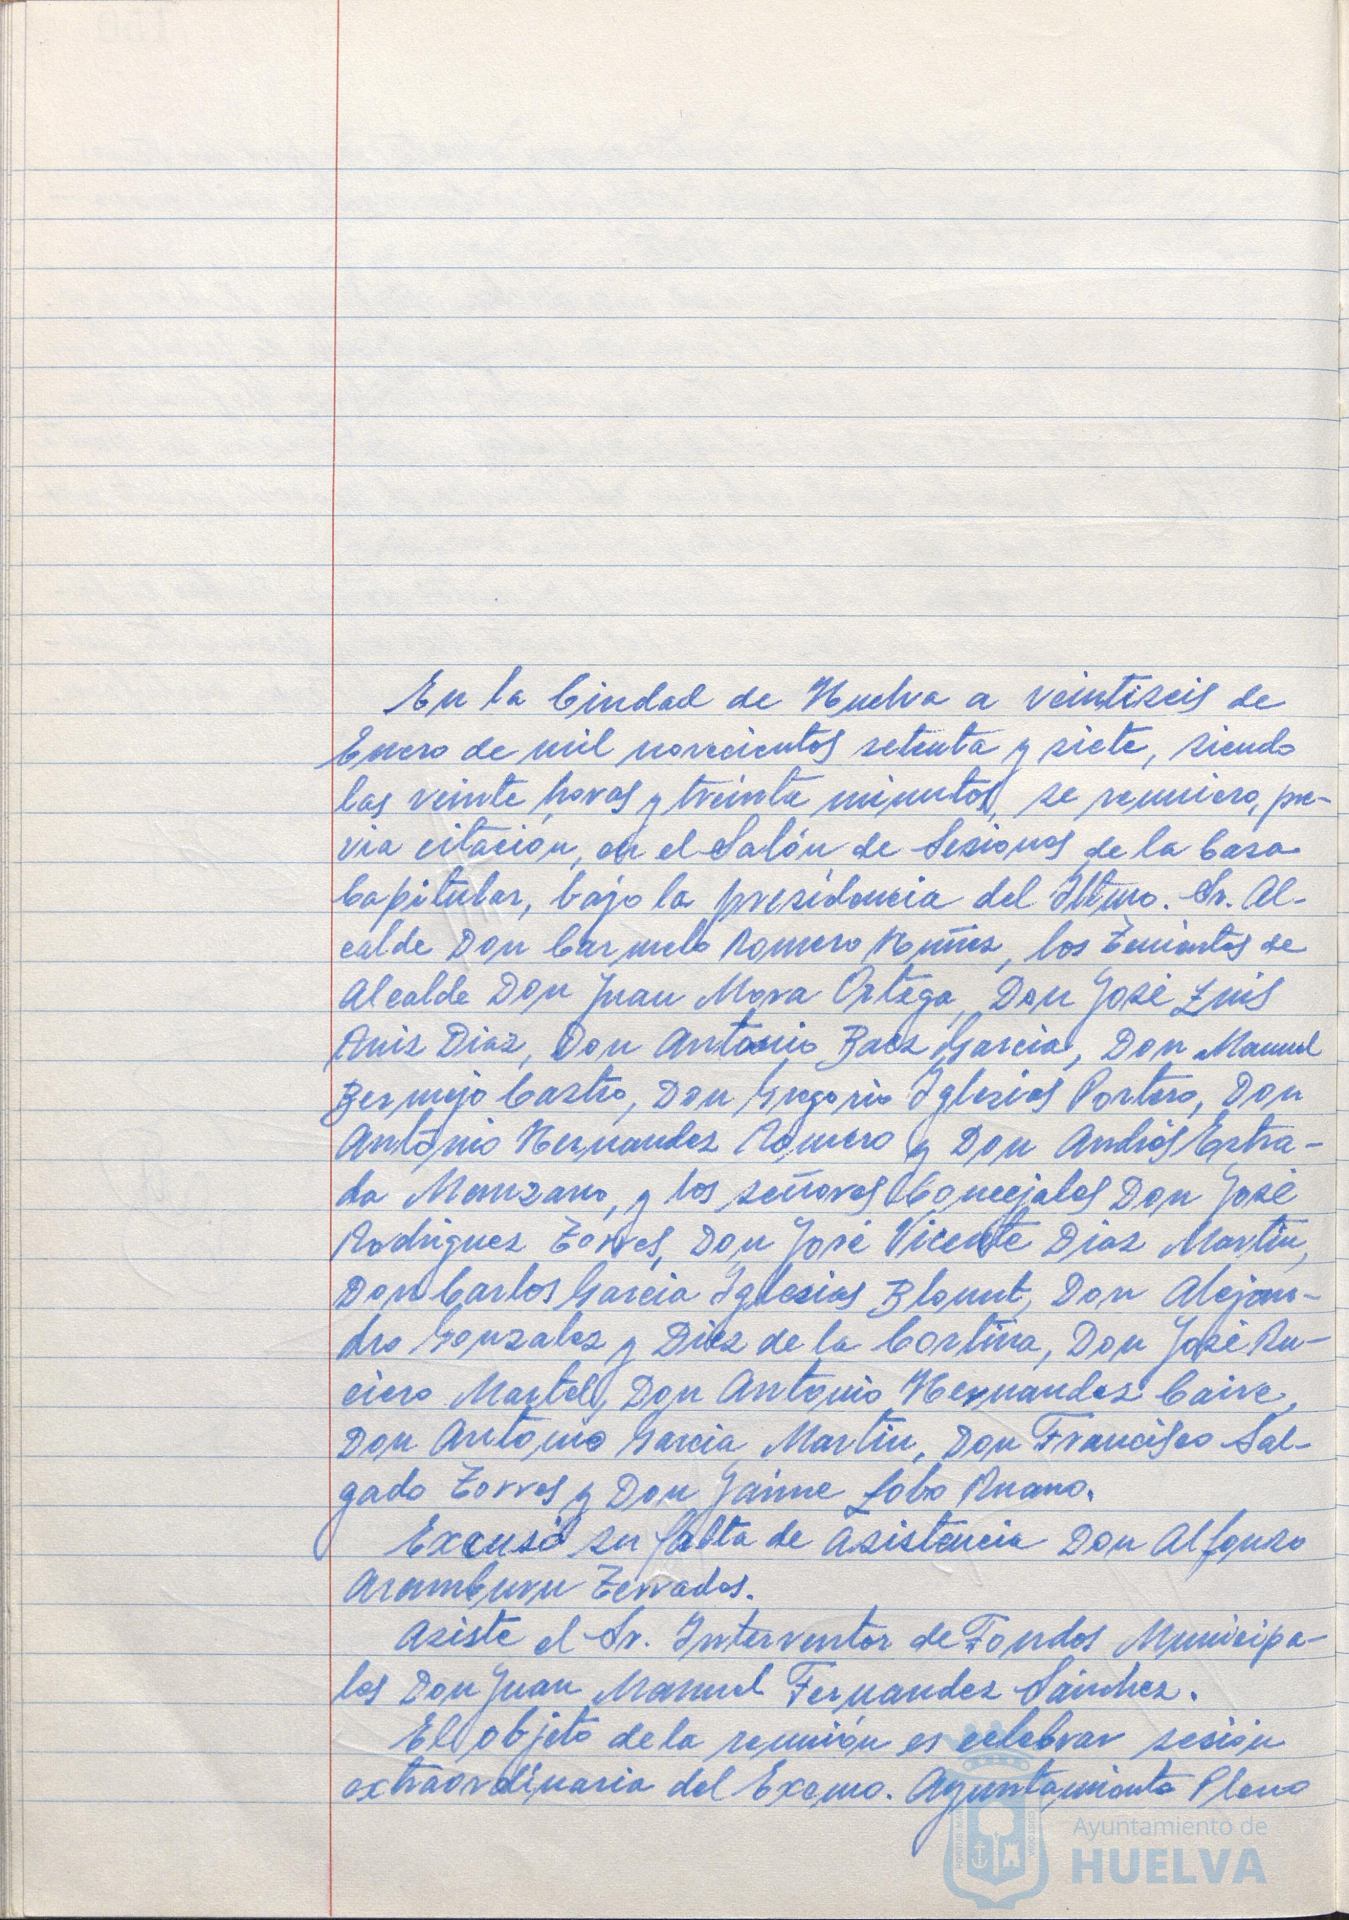 En la Ciudad de Huelva a veintiseis de
Enero de mil novecientos setenta y siete, siendo
las veinte horas y treinta minutos, se reuniero, pre-
via citación, en el Salón de Sesiones de la Casa
Capitular, bajo la presidencia del Iltmo. Sr. Al-
calde Don Carmelo Romero Núñez, los Tenientes de
Alcalde Don Juan Mora Ortega, Don José Luis
Ruiz Diaz, Don Antonio Baez Garcia, Don Manuel
Bermejo Castro, Don Gregorio Iglesias Portero, Don
Antonio Hernandez Romero y Don Andrés Estra-
da Manzano, y los señores Concejales Don José
Rodriguez Torres, Don José Vicente Diaz Martin,
Don Carlos Garcia Iglesias Blount, Don Alejan-
dro Gonzalez y Diez de la Cortina, Don José Ru-
ciero Martel, Don Antonio Hernandez Caire,
Don Antonio Garcia Martin, Don Francisco Sal-
gado Torres y Don Jaime Lobo Ruano.
Excusó su falta de asistencia Don Alfonso
Aramburu Terrades.
Asiste el Sr. Interventor de Fondos Municipa-
les Don Juan Manuel Fernandez Sánchez.
El objeto de la reunión es celebrar sesión
extraordinaria del Excmo. Ayuntamiento Pleno
Ayuntamiento de
HUELVA